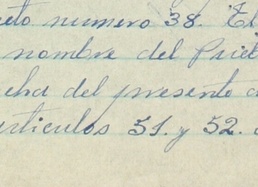 eto numero 38. El
nombre del Pue
cha del presente a
articulos 51. y 52.